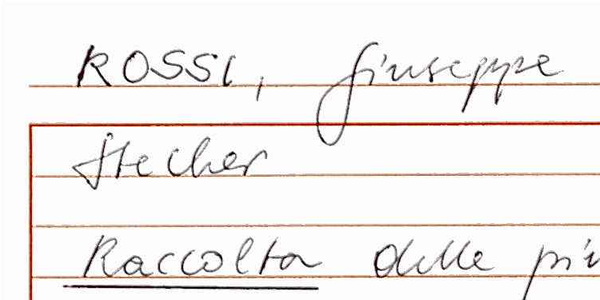 ROSSI, Giuseppe
Stecher
Raccolta delle più